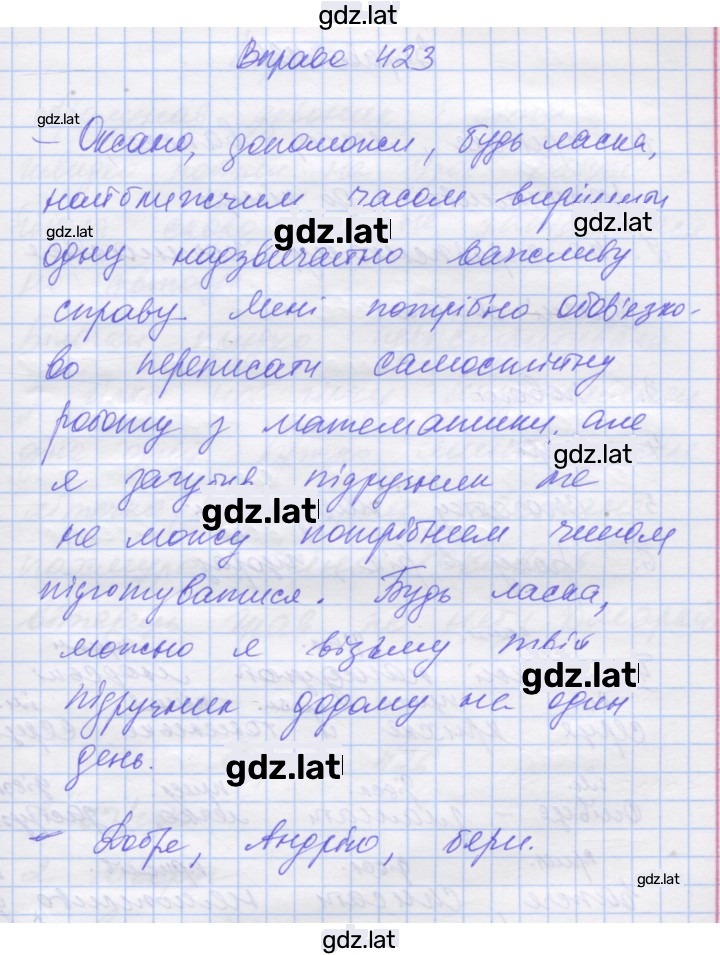 gdz.lat
Вправа 423
gdz.lat
– Оксано, допоможи, будь ласка,
найближчим часом вирішити
gdz.lat gdz.lat gdz.lat
одну надзвичайно важливу
справу. Мені потрібно обов'язко-
во переписати самостійну
роботу з математики, але
gdz.lat
я загубив підручник і не
gdz.lat
не можу потрібним чином
підготуватися. Будь ласка,
можно я візьму твій
gdz.lat
підручник додому на один
день.
gdz.lat
– Добре, Андрію, бери.
gdz.lat
gdz.lat gdz.lat